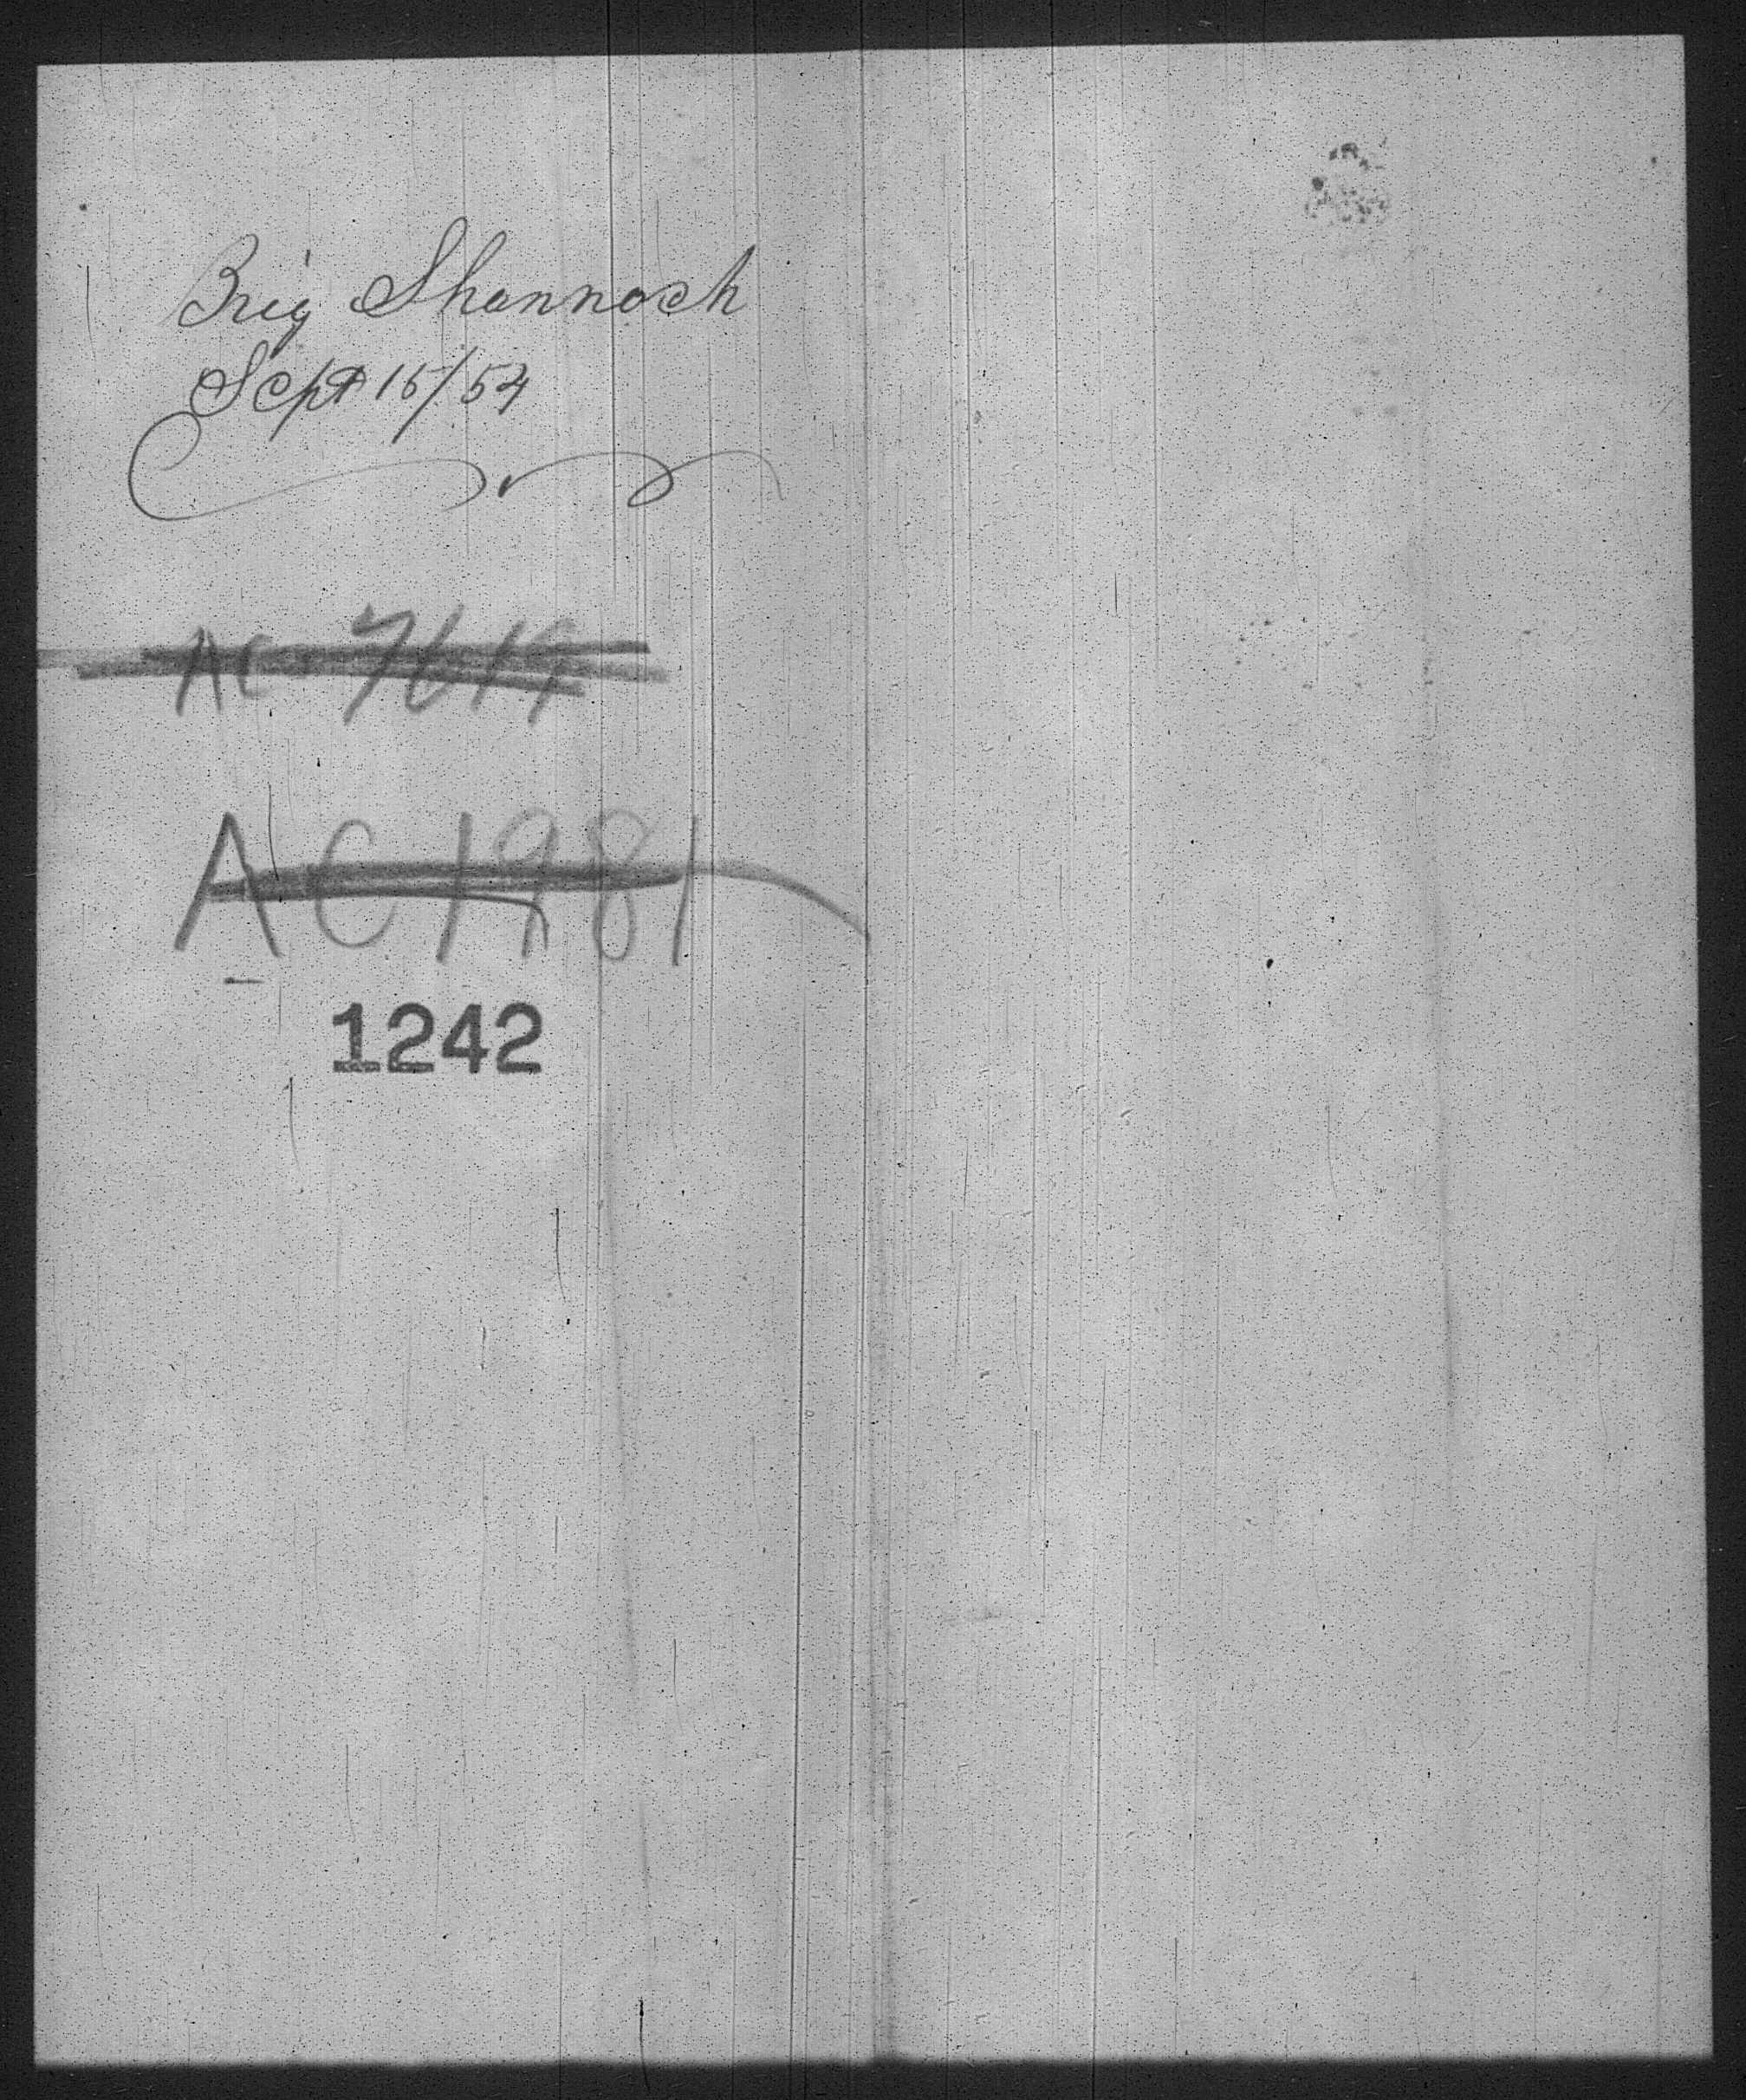 Brig Shannoch
Sept 15/54
AC 7619
AC 1981
1242